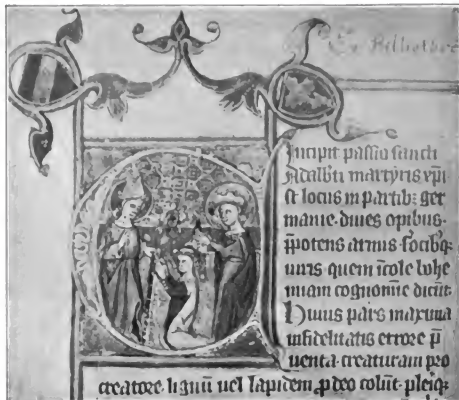 Ex Bibliothec
Incipit passio sancti
Adalbti martyris xpi
st locus in partib; ger
manie diues opibus
p̄potens armis focibq;
uiris quem īcole bohe
miam cognomine dicūt
Huius pars maxima
infidelitatis errore p̄
uenta creaturam pro
creatore lignū uel lapidem p̱ deo colūt pleiq;